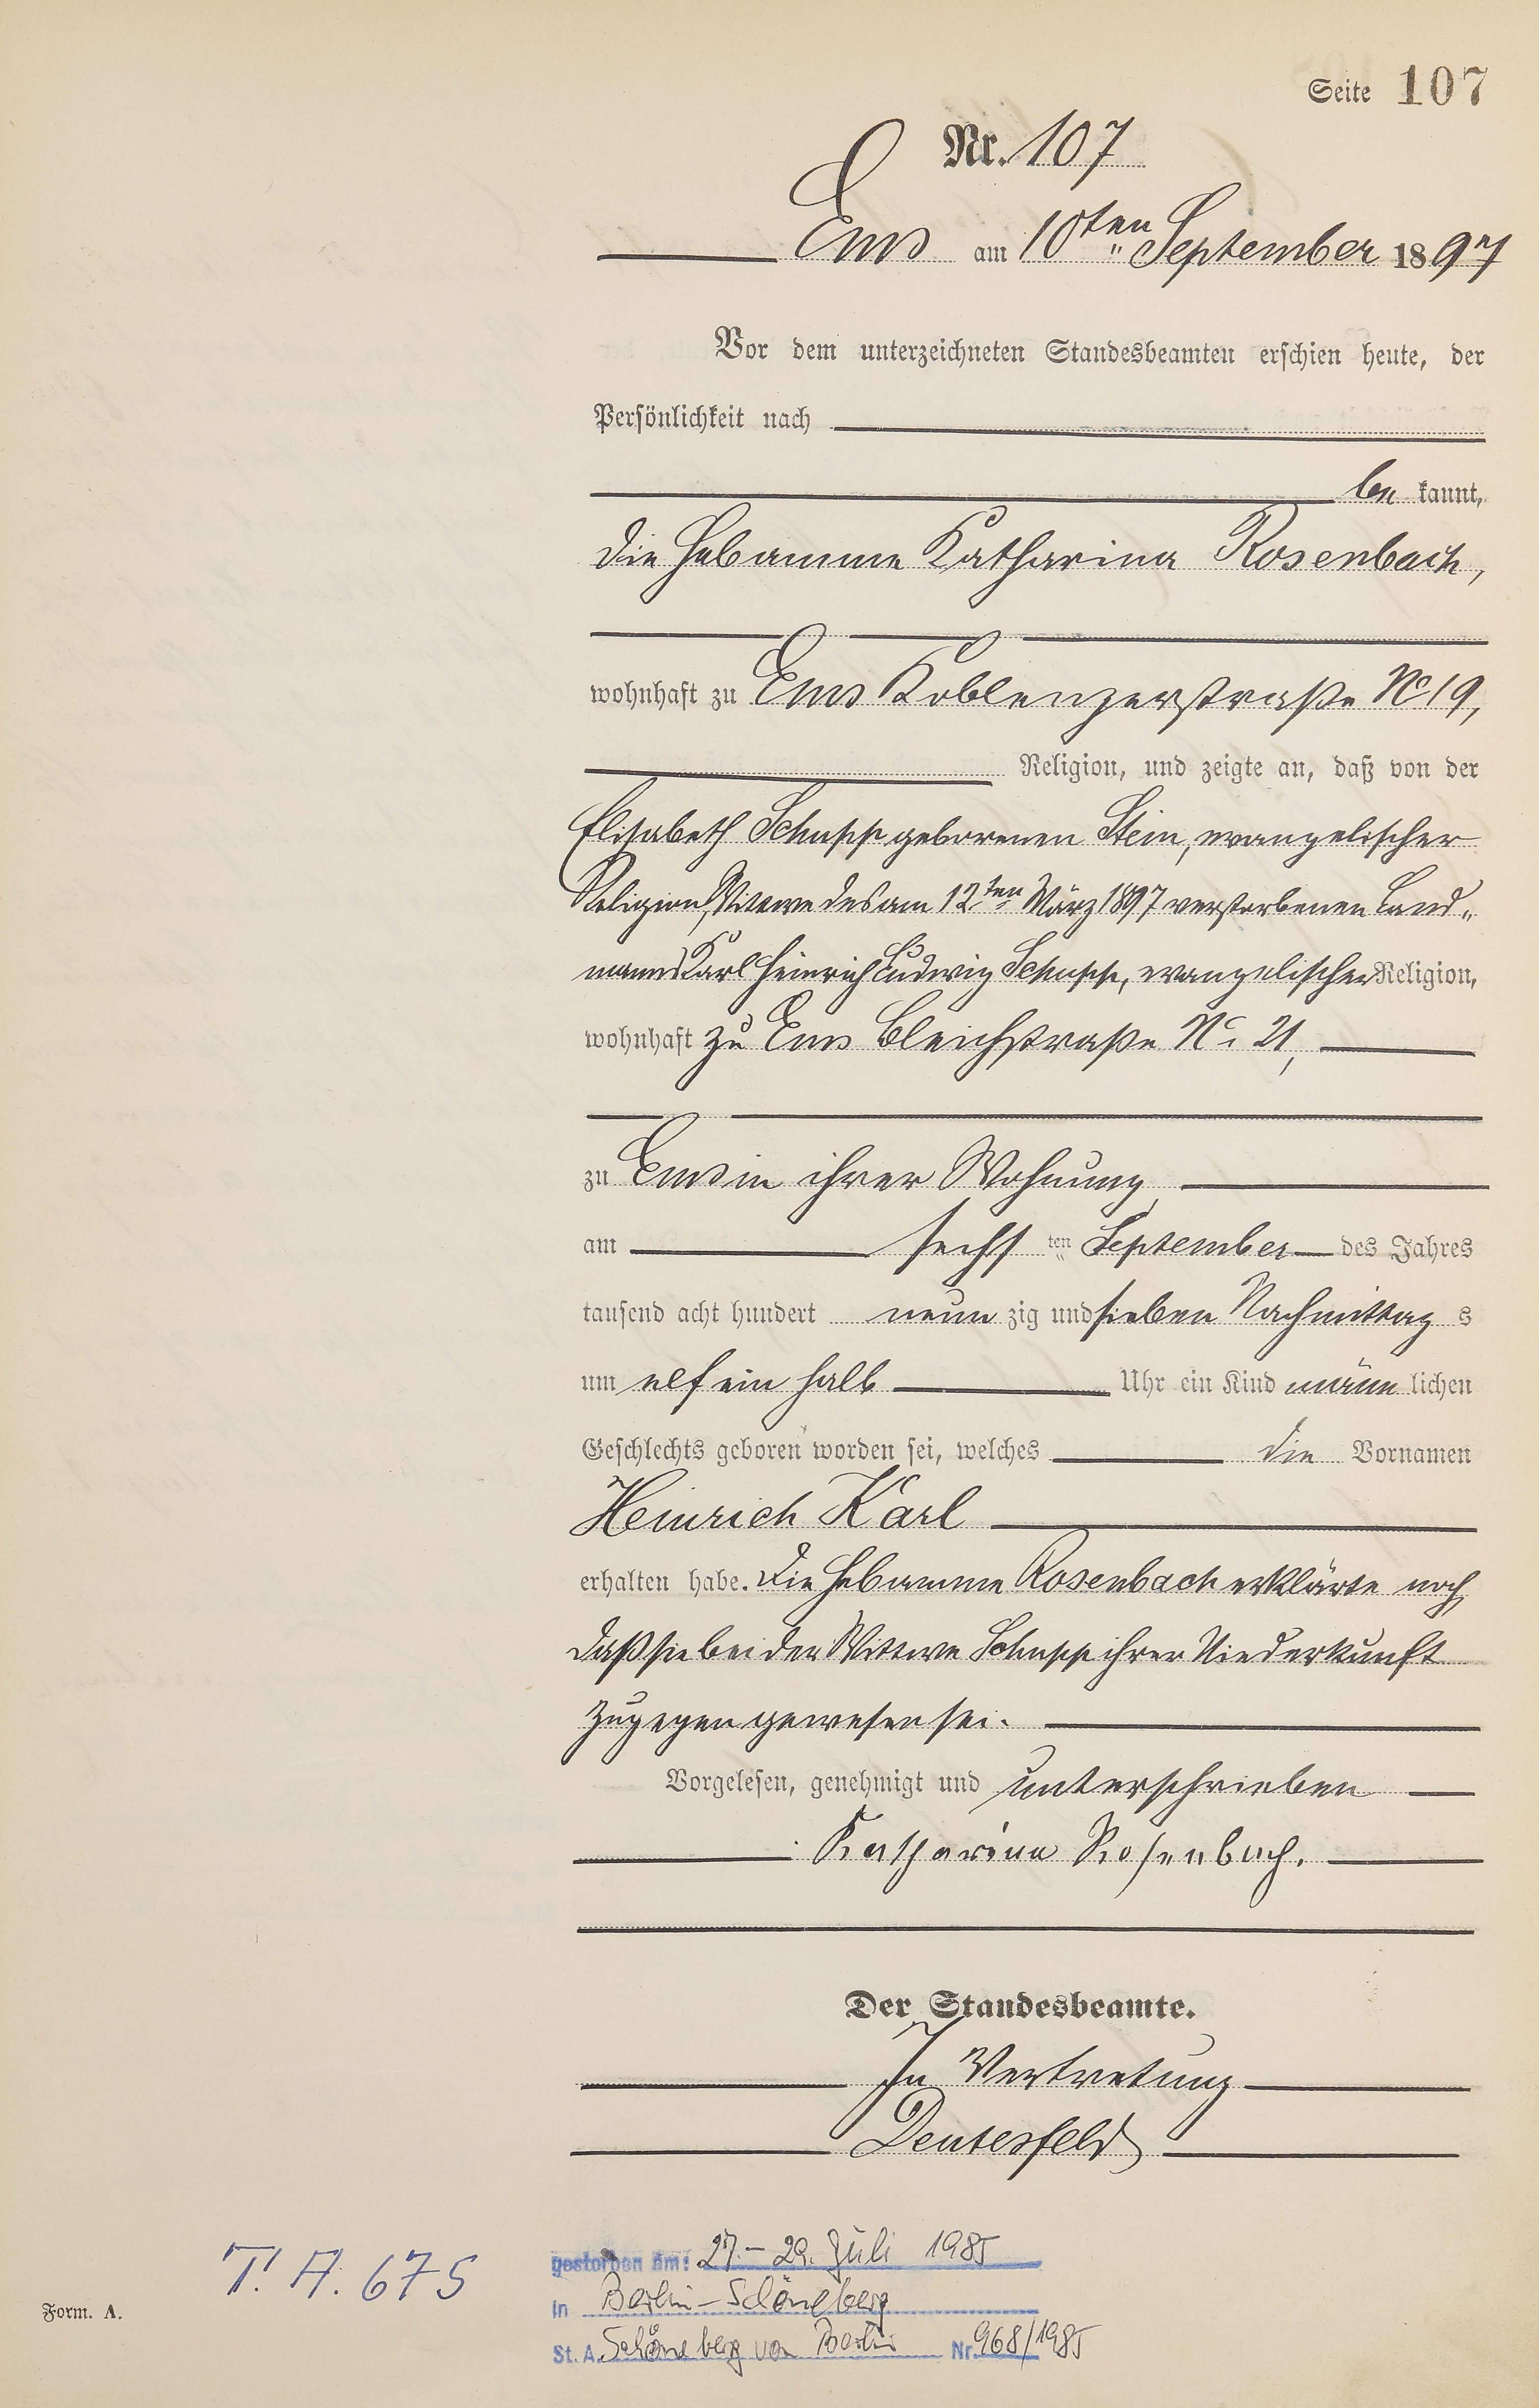 Seite 107
Nr. 107
Ems am 10ten September 1897
Vor dem unterzeichneten Standesbeamten erschien heute, der
Persönlichkeit nach
be kannt,
die Hebamme Katharina Rosenbach,
wohnhaft zu Ems Koblenzerstraße No 19,
Religion, und zeigte an, daß von der
Elisabeth Schupp geborenen Stein, evangelischer
Religion, Wittwe des am 12ten März 1897 verstorbenen Land„
manns Karl Heinrich Ludwig Schupp, evangelischer Religion,
wohnhaft zu Ems Bleichstraße No. 21,
zu Ems in ihrer Wohnung
am sechs ten September des Jahres
tausend acht hundert neun zig und sieben Nachmittag s
um elf ein halb Uhr ein Kind männ lichen
Geschlechts geboren worden sei, welches die Vornamen
Heinrich Karl
erhalten habe. Die Hebamme Rosenbach erklärte noch,
daß sie bei der Wittwe Schupp ihrer Niederkunft
zugegen gewesen sei.
Vorgelesen, genehmigt und unterschrieben
Katharina Rosenbach.
Der Standesbeamte.
In Vertretung
Deutesfeld
gestorben am: 27.–29. Juli 1985
in Berlin-Schöneberg
St. A. Schöneberg von Berlin Nr. 968/1985
T. A. 675
Form. A.